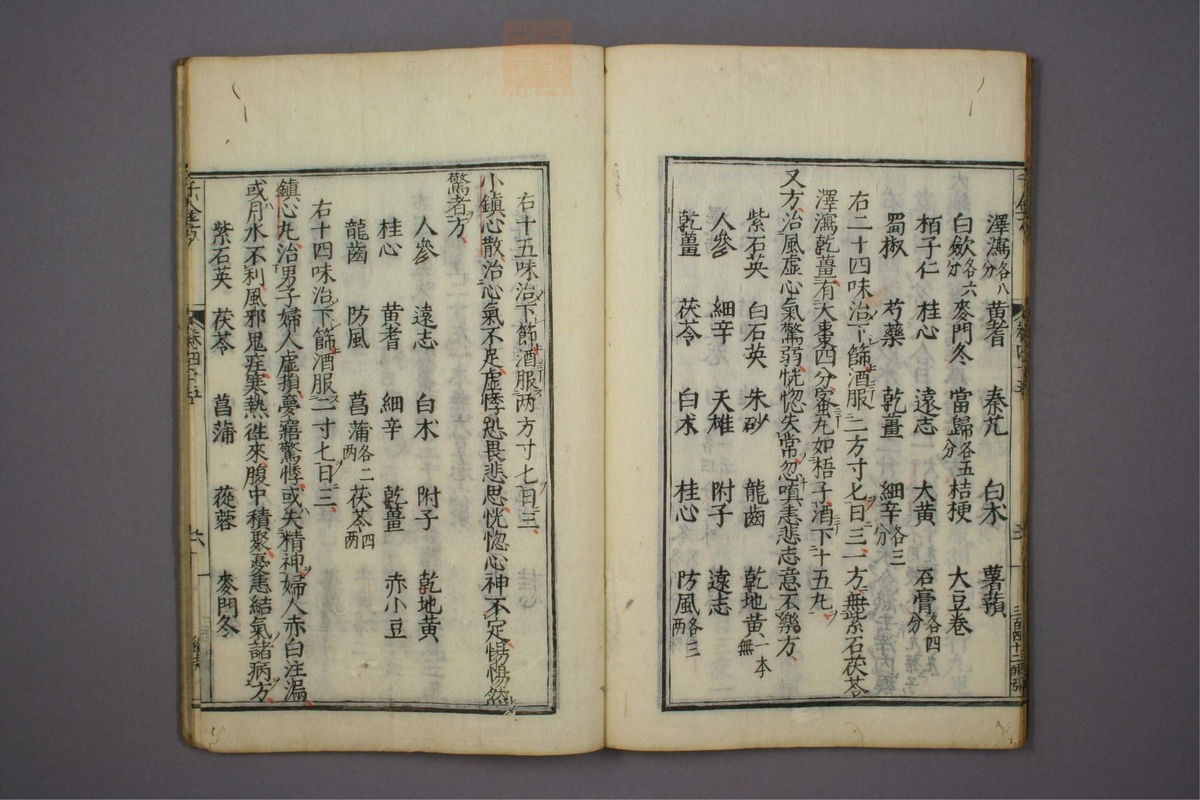 澤瀉各八分 黄耆 秦艽 白朮 薯蕷
白歛各六分 麥門冬 當歸各五分 桔梗 大豆卷
栢子仁 桂心 遠志 大黄 石膏各四分
蜀椒 芍藥 乾薑 細辛各三分
右二十四味治下篩酒服二方寸七日三一方無紫石茯苓
澤瀉乾薑有大棗四分蜜丸如梧子酒下十五丸
又方治風虚心氣驚弱恍惚失常忽嗔恚悲志意不樂方
紫石英 白石英 朱砂 龍齒 乾地黄一本無
人參 細辛 天雄 附子 遠志
乾薑 茯苓 白朮 桂心 防風各三两
右十五味治下篩酒服两方寸七日三
小鎮心散治心氣不足虚悸恐畏悲思恍惚心神不定惕惕然
驚者方
人參 遠志 白朮 附子 乾地黄
桂心 黄耆 細辛 乾薑 赤小豆
龍齒 防風 菖蒲各二两 茯苓四两
右十四味治下篩酒服二寸七日三
鎮心丸治男子婦人虚損夢寤驚悸或失精神婦人赤白注漏
或月水不利風邪鬼疰寒熱往來腹中積聚憂恚結氣諸病方
紫石英 茯苓 菖蒲 蓯蓉 麥門冬